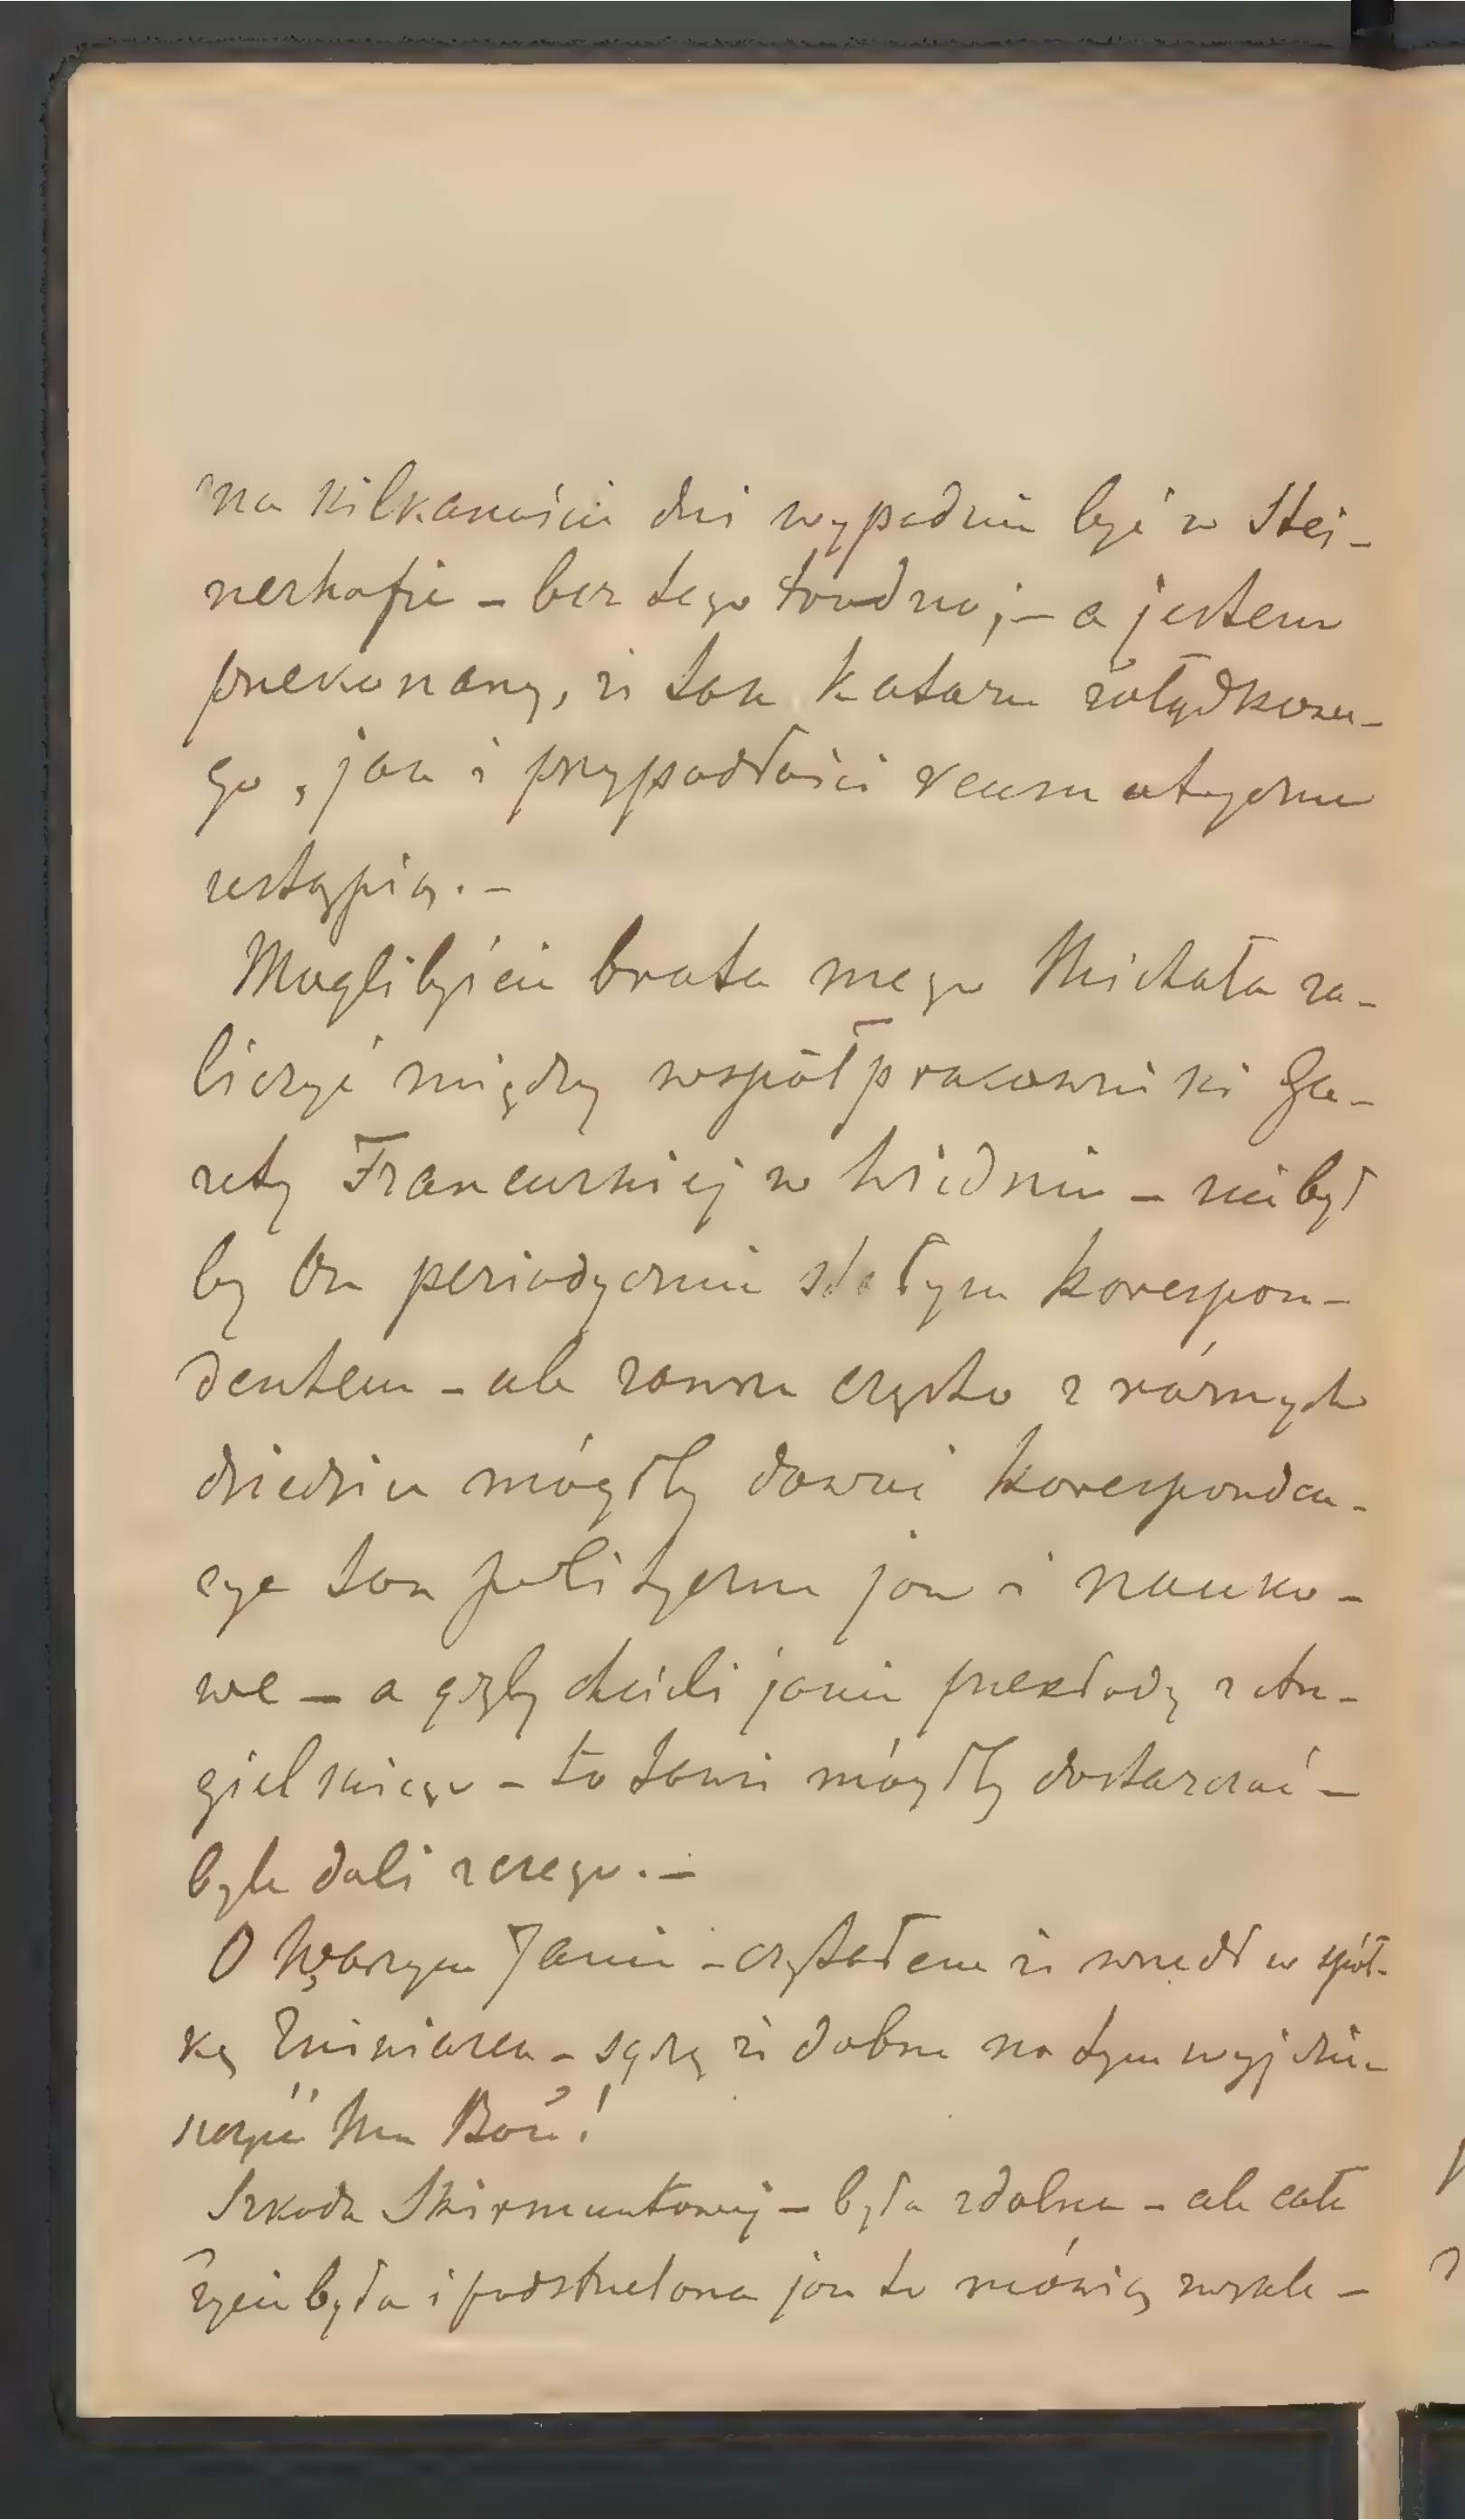 na kilkanaście dni wypadnie być w Stei-
nerhofie – bez tego trudno; – a jestem
przekonany, że tak kataru żołądkowe-
go, jak i przypadłości reumatyczne
ustąpią. –
Moglibyście brata mego Michała za-
liczyć między współpracowniki Ga-
zety Francuskiej w Wiedniu – nie był
by on periodycznie stałym korespon-
dentem – ale zawsze często z różnych
dziedzin mógłby dawać koresponden-
cye tak polityczne jak i nauko-
we – a gdyby chcieli jakie przekłady z An-
gielskiego – to także mógłby dostarczać –
byle dali z czego. –
O Waszym Janie – czytałem że wszedł w spół-
kę – sądzę że dobrze na tym wyjdzie
szczęść Mu Boże!
Szkoda Skirmuntowej – była zdolna – ale całe
życie była i podstrzelona jak to mówią